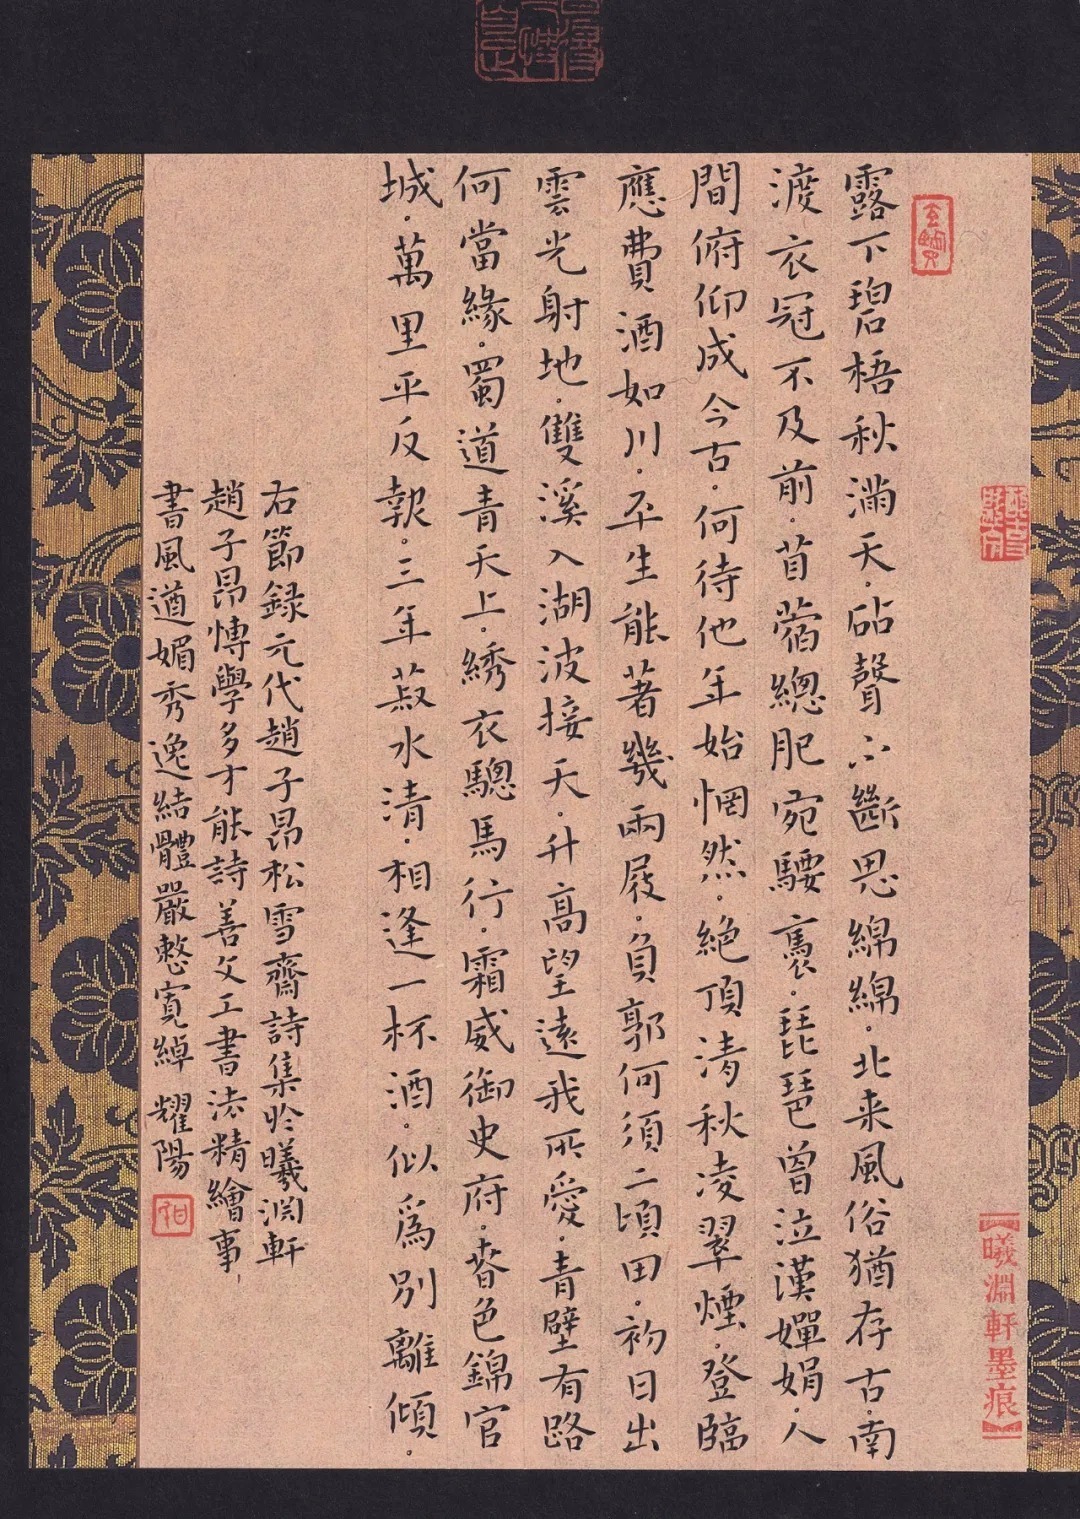 露下碧梧秋滿天。砧聲不斷思綿綿。北來風俗猶存古。南
渡衣冠不及前。苜蓿總肥宛騕褭。琵琶曾泣漢嬋娟。人
間俯仰成今古。何待他年始惘然。絕頂清秋凌翠煙。登臨
應費酒如川。平生能著幾兩屐。負郭何須二頃田。初日出
雲光射地。雙溪入湖波接天。升高望遠我所愛。青壁有路
何當緣。蜀道青天上。綉衣驄馬行。霜威御史府。春色錦官
城。萬里平反報。三年菽水清。相逢一杯酒。似為別離傾。
右節録元代趙子昂松雪齋詩集於曦淵軒
趙子昂博學多才能詩善文工書法精繪事
書風遒媚秀逸結體嚴整寬綽 耀陽
【曦淵軒墨痕】